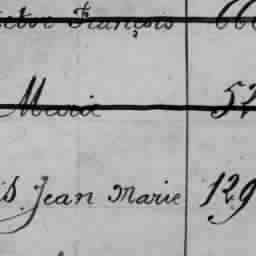 François 66
Marie 52
Jean Marie 129